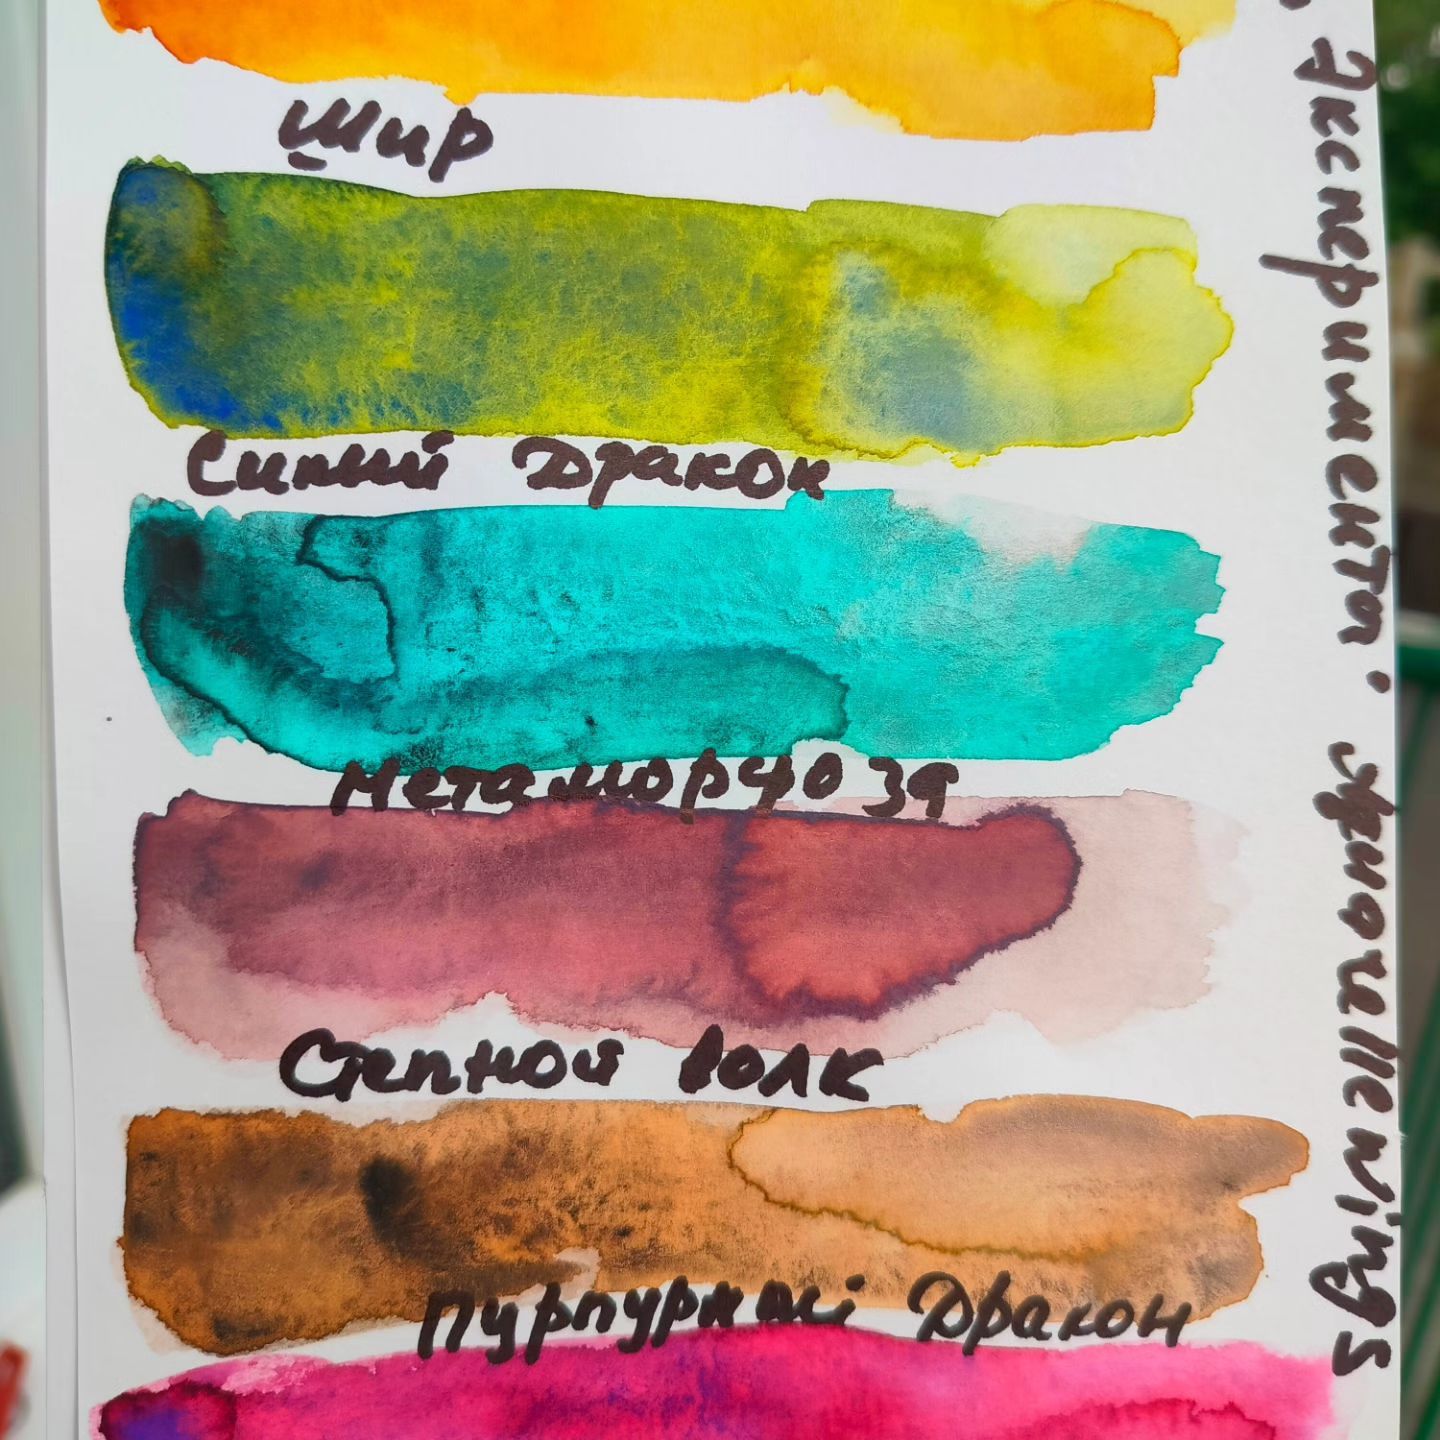 Шир
Синий Дракон
Метаморфоза
Степной волк
Пурпурный Дракон
Эксперименты. Aquarelle wings